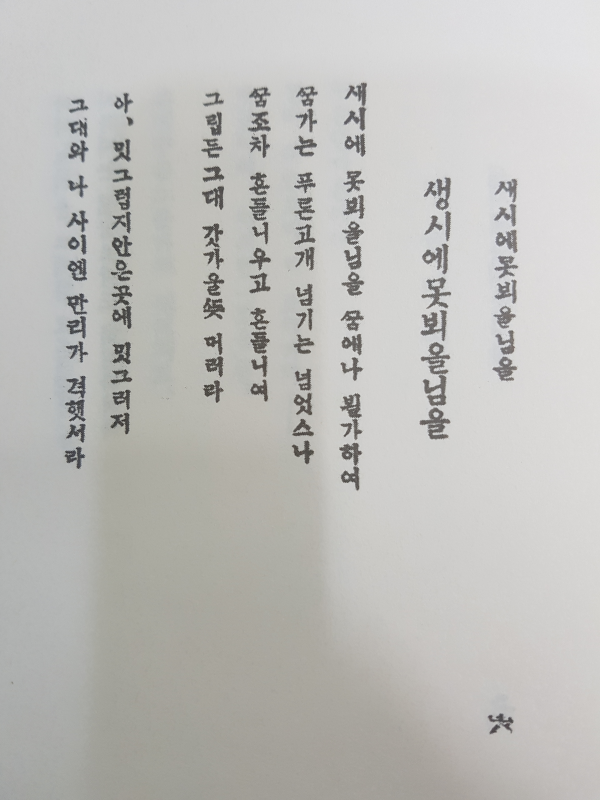 새시에못뵈올님을
생시에못뵈올님을
새시에 못뵈올님을 꿈에나 뵐가하여
꿈가는 푸른고개 넘기는 넘엇스나
꿈조차 흔들니우고 흔들니여
그립든그대 갓가울뜻 머러라
아, 밋그럽지안은곳에 밋그러저
그대와 나 사이엔 만리가 격햇서라